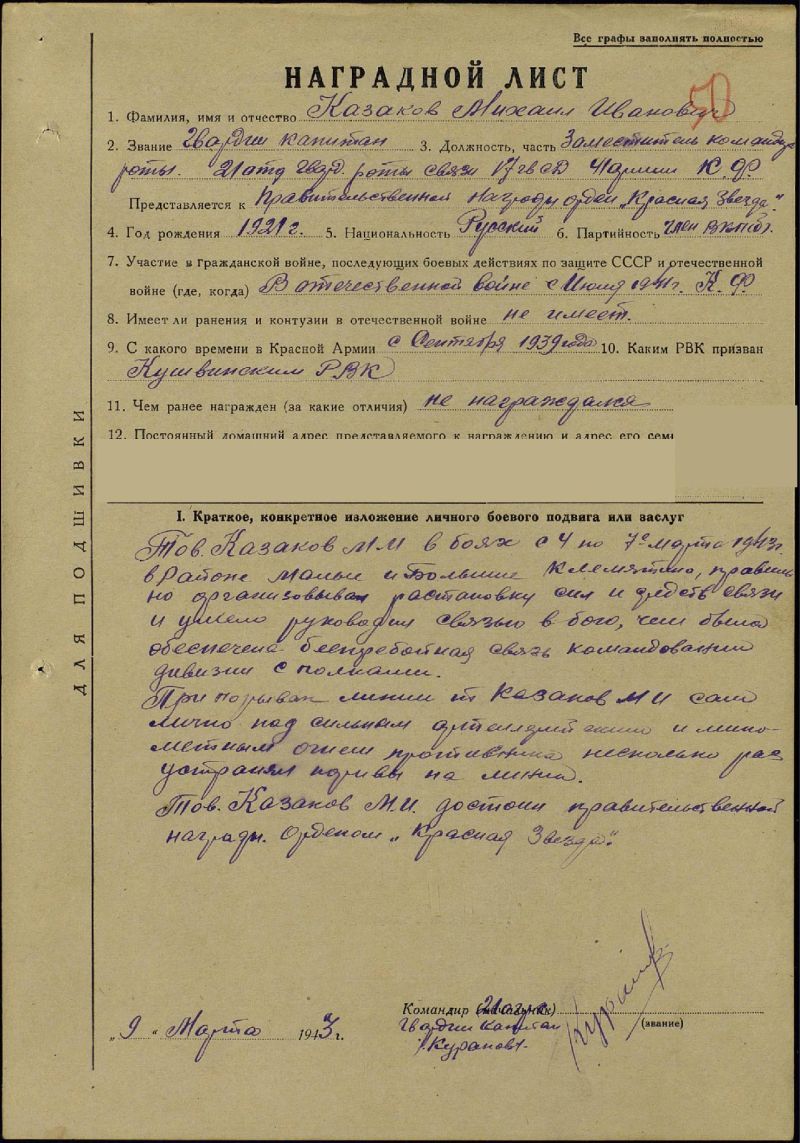 Все графы заполнять полностью
НАГРАДНОЙ ЛИСТ
50
1. Фамилия, имя и отчество Казаков Михаил Иванович
2. Звание Гвардии капитан 3. Должность, часть Заместитель командира
роты. 21 отд гвард. роты связи 17 гв СД 41 армии К. Ф.
Представляется к Правительственной награды орден „Красная Звезда".
4. Год рождения 1921 г. 5. Национальность Русский 6. Партийность член ВКП(б).
7. Участие в гражданской войне, последующих боевых действиях по защите СССР и отечественной
войне (где, когда) В отечественной войне с Июля 1941 г. К. Ф.
8. Имеет ли ранения и контузии в отечественной войне не имеет.
9. С какого времени в Красной Армии с Сентября 1939 года 10. Каким РВК призван
Кушвинским РВК
11. Чем ранее награжден (за какие отличия) не награждался
12. Постоянный домашний адрес представляемого к награждению и адрес его
I. Краткое, конкретное изложение личного боевого подвига или заслуг
Тов. Казаков М И в боях с 4 по 7е марта 1943 г.
в Районе Малы и Больше Клемятино, правиль
но организовывал растановку сил и средств связи
и умело руководил связью в бою, чем была
обеспечена бесперебойная связь командования
дивизии с полками.
При порывах линии т. Казаков М И сам
лично под сильным артиллерийским и мино-
метным огнем противника несколько раз
устранял порывы на линии.
Тов. Казаков М.И. достоин правительственной
награды. Орденом „Красная Звезда".
Командир (начальник)
Гвардии Капитан
/Куранов/.
(звание)
„9" Марта 1943 г.
ДЛЯ ПОДШИВКИ